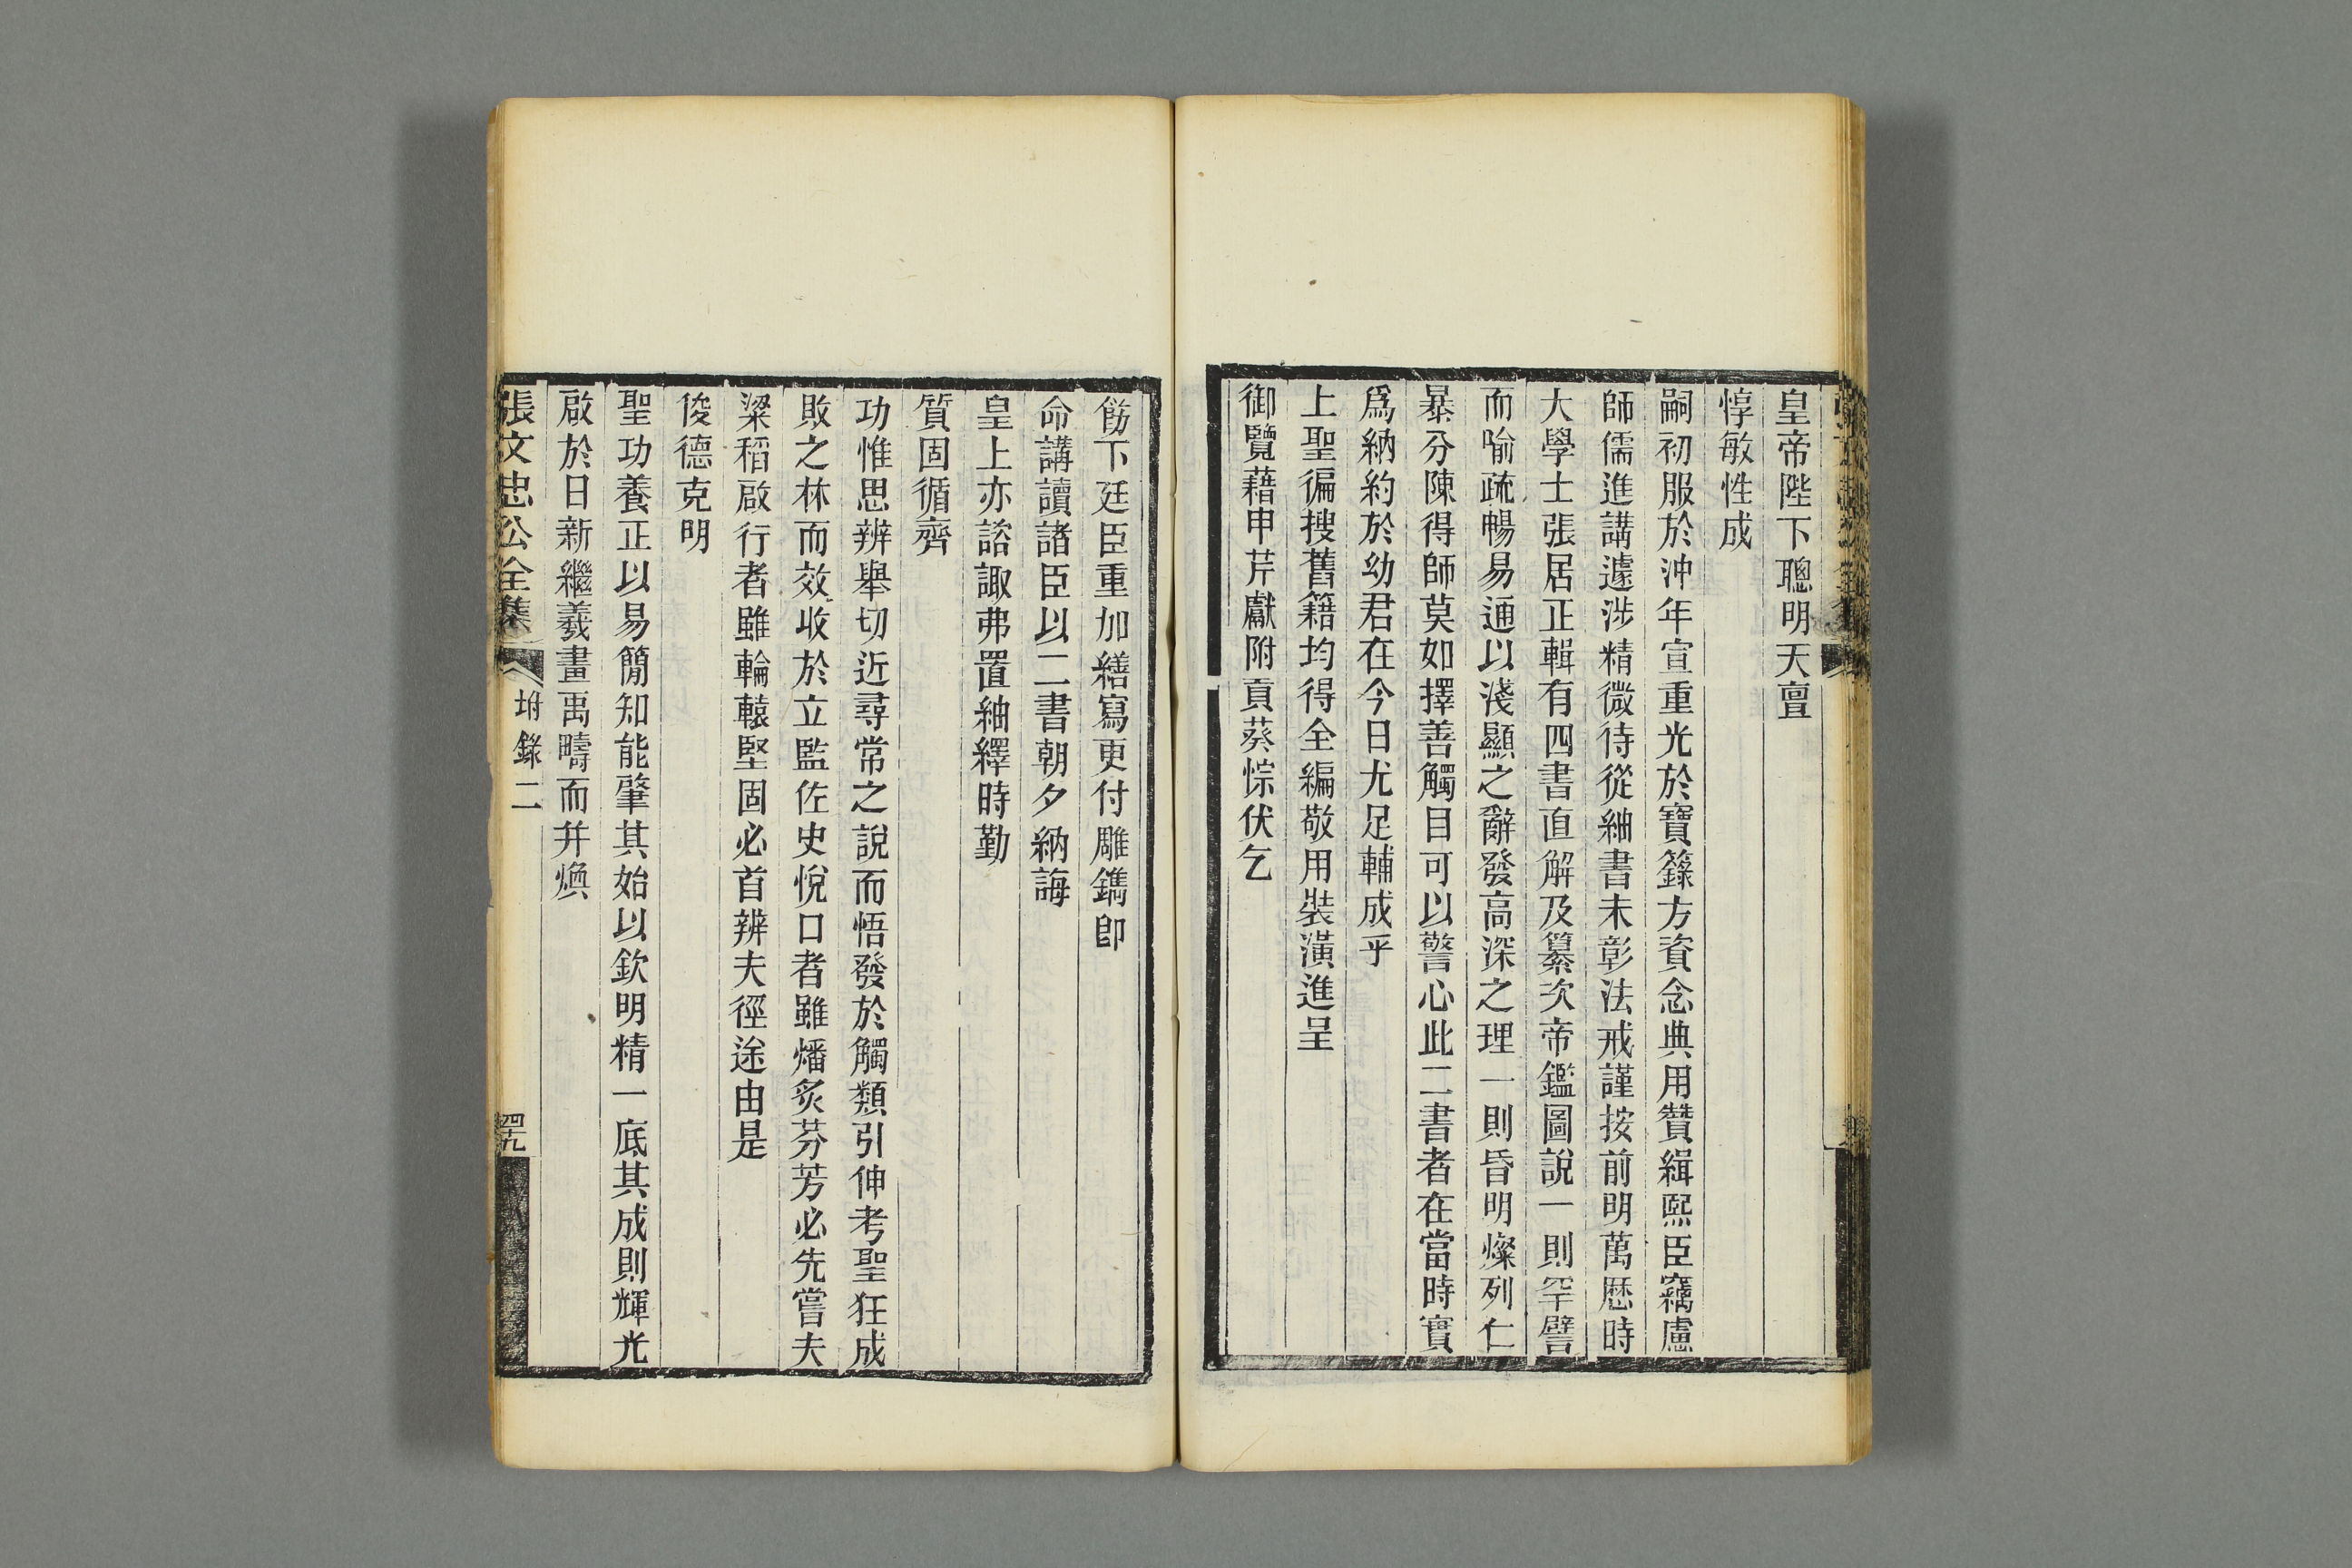 皇帝陛下聰明天亶
惇敏性成
嗣初服於沖年宣重光於寶籙方資念典用贊緝熙臣竊慮
師儒進講遽涉精微待從紬書未彰法戒謹按前明萬歷時
大學士張居正輯有四書直解及纂次帝鑑圖說一則罕譬
而喻疏暢易通以淺顯之辭發高深之理一則昏明燦列仁
暴分陳得師莫如擇善觸目可以警心此二書者在當時實
爲納約於幼君在今日尤足輔成乎
上聖徧搜舊籍均得全編敬用裝潢進呈
御覽藉申芹獻附貢葵悰伏乞
飭下廷臣重加繕寫更付雕鐫卽
命講讀諸臣以二書朝夕納誨
皇上亦諮諏弗置紬繹時勤
質固循齊
功惟思辨舉切近尋常之說而悟發於觸類引伸考聖狂成
敗之林而效收於立監佐史悅口者雖燔炙芬芳必先嘗夫
粱稻啟行者雖輪轅堅固必首辨夫徑途由是
俊德克明
聖功養正以易簡知能肇其始以欽明精一底其成則輝光
啟於日新繼羲畫禹疇而幷煥
張文忠公全集
坿錄二
四十九